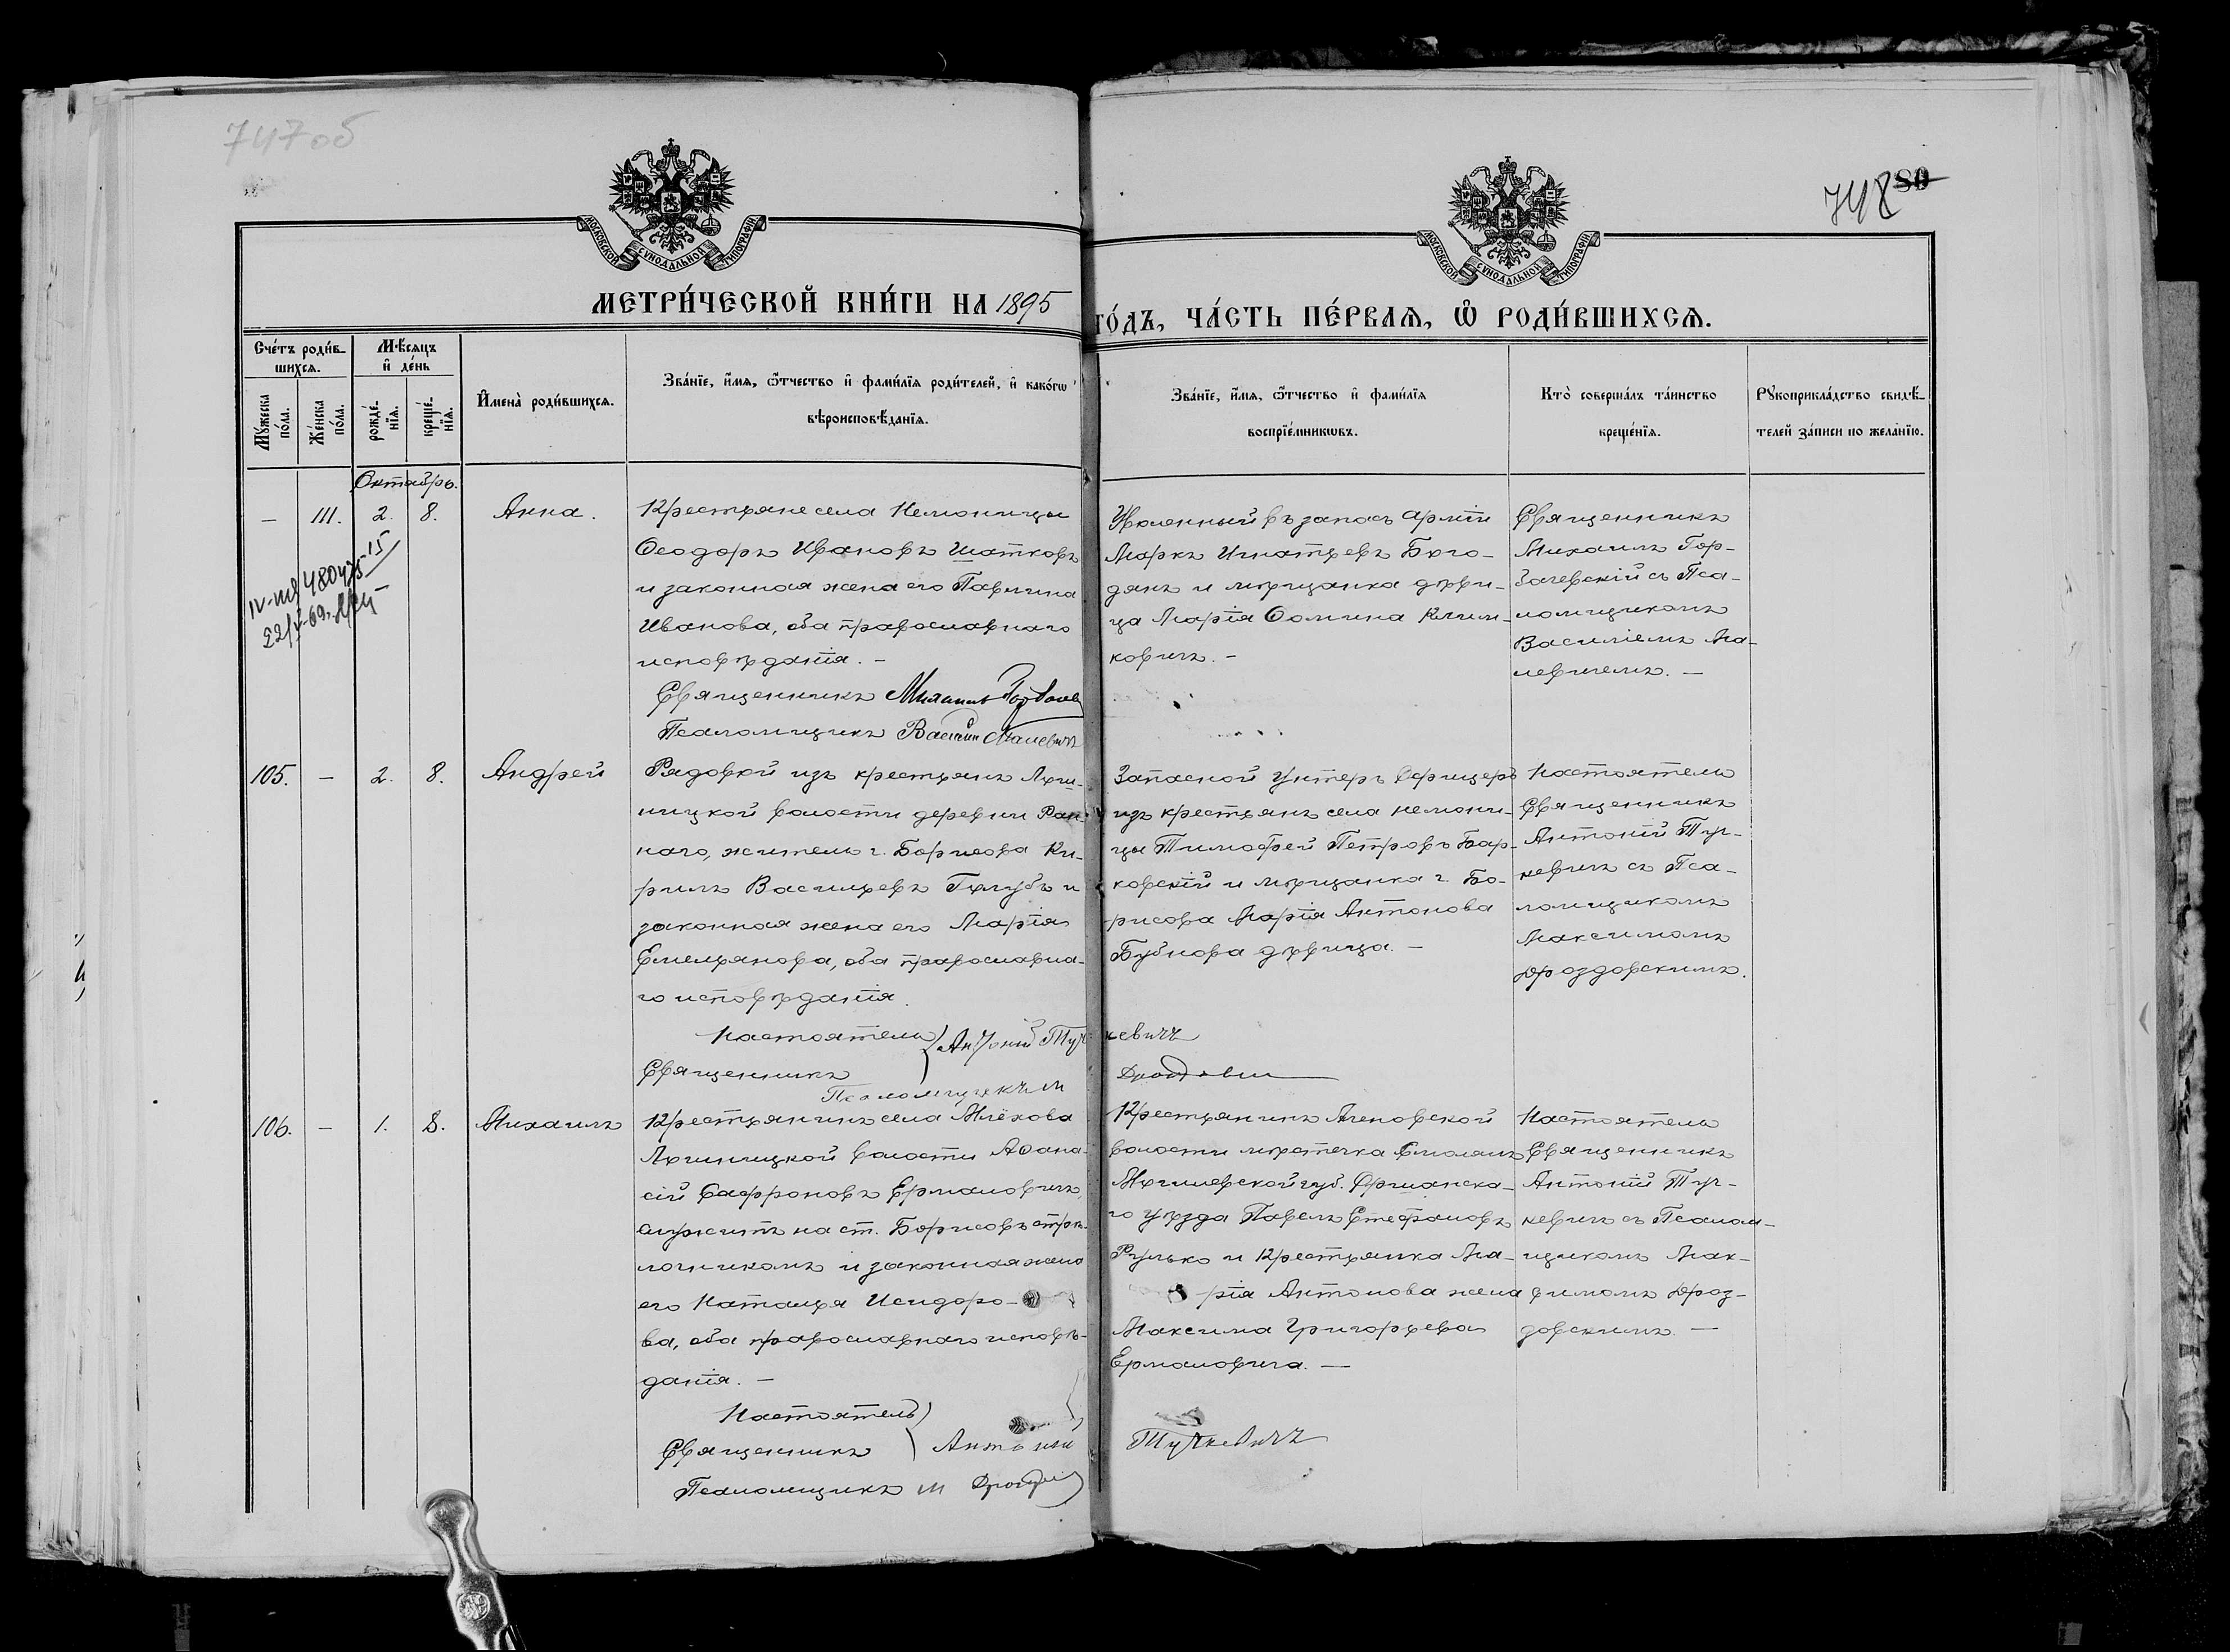 747об
748 80
МОСКОВСКОЙ СѴНОДАЛЬНОЙ ТИПОГРАФІИ
МОСКОВСКОЙ СѴНОДАЛЬНОЙ ТИПОГРАФІИ
МЕТРИ́ЧЕСКОЙ КНИ́ГИ НА 1895
ГО́ДЪ, ЧА́СТЬ ПЕ́РВАѦ, Ѡ҆ РОДИ́ВШИХСѦ.
Сче́тъ роди́в-
шихсѧ.
Мꙋ́жеска
по́ла.
Же́нска
по́ла.
Мѣ́сѧцъ
и҆ де́нь
рожде́-
нїѧ.
креще́-
нїѧ.
И҆мена̀ роди́вшихсѧ.
Зва́нїе, и҆́мѧ, ѻ҆́тчество и҆ фами́лїѧ роди́телей, и҆ како́гѡ
вѣроисповѣ́данїѧ.
Зва́нїе, и҆́мѧ, ѻ҆́тчество и҆ фами́лїѧ
воспрїе́мникѡвъ.
Кто̀ соверша́лъ та́инство
креще́нїѧ.
Рꙋкоприкла́дство свидѣ́-
телей за́писи по жела́нїю.
Октябрь.
— 111. 2. 8. Анна.
Крестьяне села Немоницы
Ѳеодоръ Ивановъ Шатковъ
и законная жена его Павлина
Иванова, оба православнаго
исповѣданія. —
Священникъ Михаилъ
Псаломщикъ Василій Малевичъ
Уволенный въ запасъ арміи
Маркъ Игнатьевъ Бого-
данъ и мѣщанка дѣви-
ца Марія Ѳомина Клим-
ковичъ. —
Священникъ
Михаилъ Гор-
бачевскій съ Пса-
ломщикомъ
Василіемъ Ма-
левичемъ. —
105. — 2. 8. Андрей
Рядовой изъ крестьянъ Лоши-
ницкой волости деревни
наго, житель г. Борисова Ки-
рилъ Васильевъ Голубъ и
законная жена его Марія
Емельянова, оба православна-
го исповѣданія.
Настоятель
Священникъ Антоній Тучкевичъ
Псаломщикъ М
Запасной унтеръ офицеръ
изъ крестьянъ села Немони-
цы Тимофей Петровъ Бар-
ковскій и мѣщанка г. Бо-
рисова Марія Антонова
Бубнова дѣвица. —
Настоятель
Священникъ
Антоній Туч-
кевичъ съ Пса-
ломщикомъ
Максимомъ
Дроздовскимъ.
106. — 1. 8. Михаилъ
Крестьянинъ села Млёхова
Лошницкой волости Аѳана-
сій Сафроновъ Ермаловичъ,
служитъ на ст. Борисовъ стрѣ-
лочникомъ и законная жена
его Наталья Исидоро-
ва, оба православнаго исповѣ-
данія. —
Настоятель
Священникъ Антоній Тучкевичъ
Псаломщикъ М
Крестьянинъ
волости мѣстечка Смолянъ
Могилевской губ. Оршанска-
го уѣзда Павелъ Стефановъ
Рулько и Крестьянка Ма-
рія Антонова жена
Максима Григорьева
Ермаловича. —
Настоятель
Священникъ
Антоній Туч-
кевичъ съ Псалом-
щикомъ Мак-
симомъ Дроз-
довскимъ. —